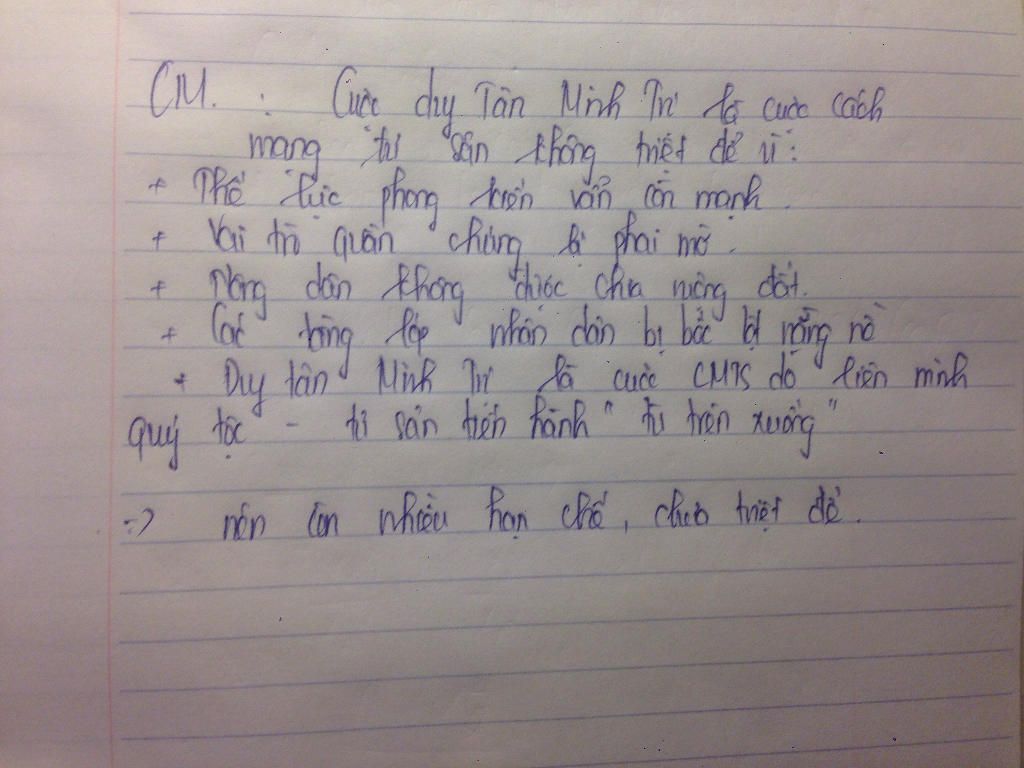 CM. : Cuộc duy Tân Minh Trị là cuộc cách
mạng tư sản không triệt để vì:
+ Thế lực phong kiến vẫn còn mạnh.
+ Vai trò quần chúng bị phai mờ.
+ Nông dân không được chia ruộng đất.
+ Các tầng lớp nhân dân bị bóc lột nặng nề
+ Duy tân Minh Trị là cuộc CMTS do liên minh
quý tộc - tư sản tiến hành " từ trên xuống"
=> nên còn nhiều hạn chế, chưa triệt để.